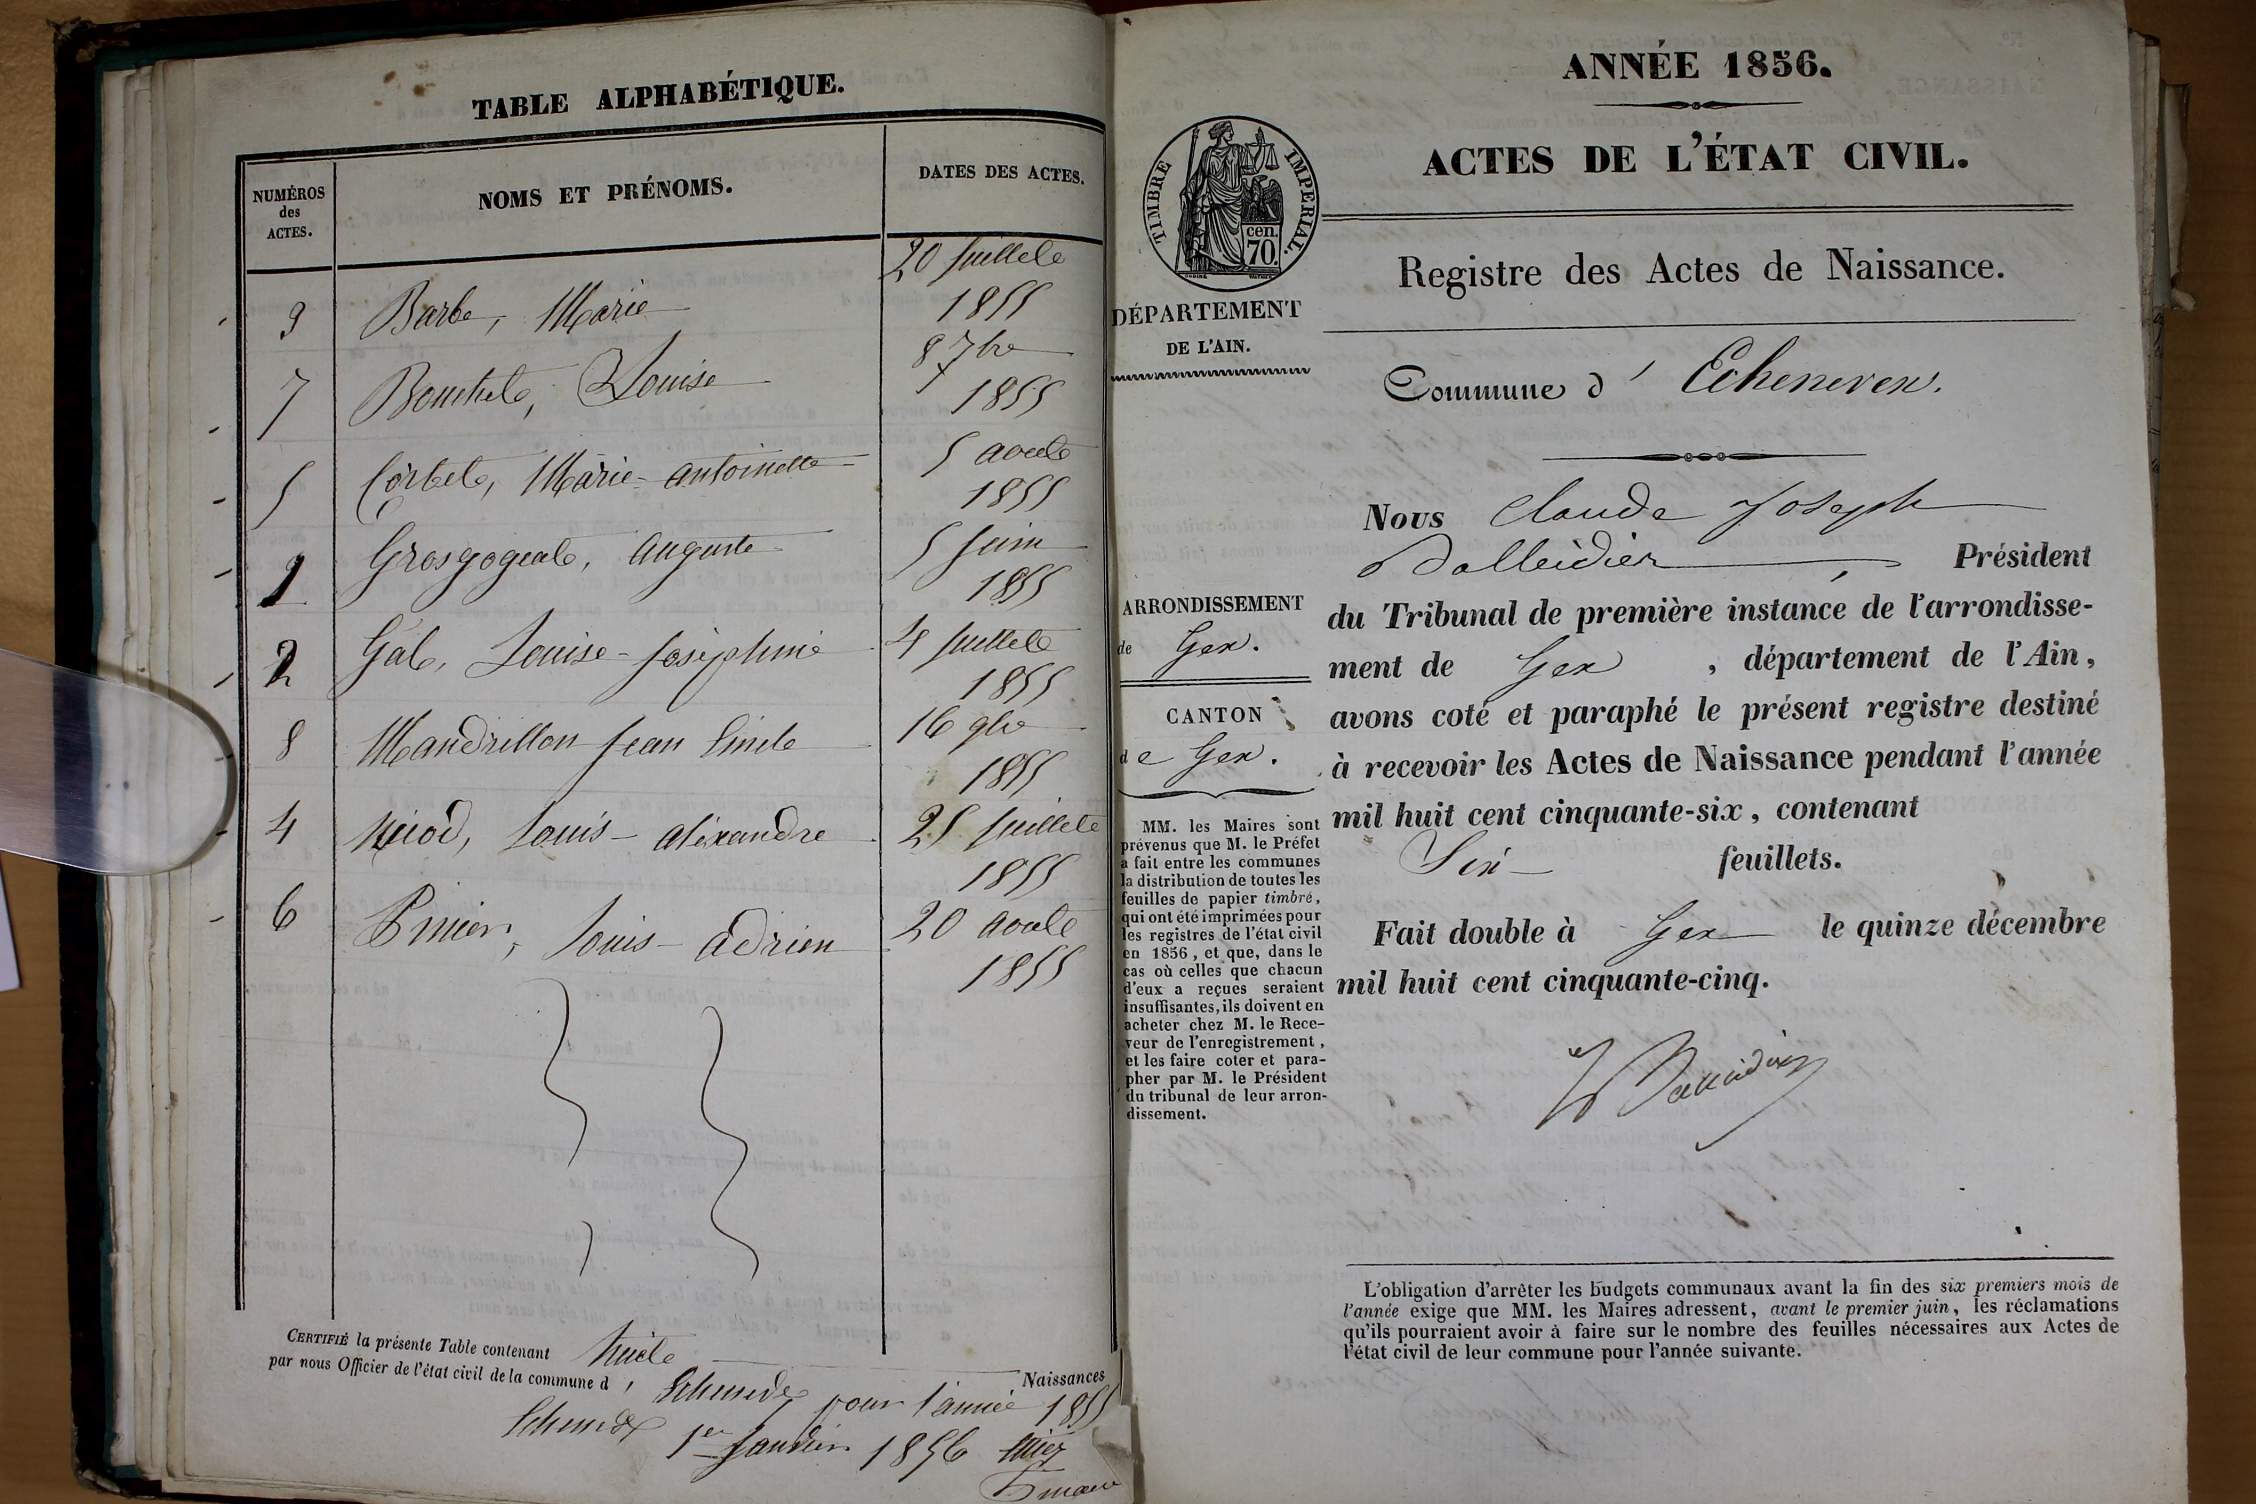 TABLE ALPHABÉTIQUE.
NUMÉROS des ACTES.
NOMS ET PRÉNOMS.
DATES DES ACTES.
3 Barbe, Marie 20 Juillet 1855
7 Bouchet, Louise 8 7bre 1855
5 Corbet, Marie-antoinette 5 août 1855
1 Grosgogeat, auguste 5 Juin 1855
2 Gal, Louise-Joséphine 4 Juillet 1855
8 Mandrillon Jean 16 9bre 1855
4 Niod, Louis-aléxandre 25 Juillet 1855
6 Louis-adrien 20 août 1855
CERTIFIÉ la présente Table contenant huit Naissances
par nous Officier de l'état civil de la commune d'
pour l'année 1855
1er Janvier 1856
ANNÉE 1856.
ACTES DE L'ÉTAT CIVIL.
TIMBRE IMPERIAL.
cen.
70.
Registre des Actes de Naissance.
DÉPARTEMENT
DE L'AIN.
Commune d' Echenevex.
ARRONDISSEMENT
de Gex.
CANTON
de Gex.
MM. les Maires sont
prévenus que M. le Préfet
a fait entre les communes
la distribution de toutes les
feuilles de papier timbré,
qui ont été imprimées pour
les registres de l'état civil
en 1856, et que, dans le
cas où celles que chacun
d'eux a reçues seraient
insuffisantes, ils doivent en
acheter chez M. le Rece-
veur de l'enregistrement,
et les faire coter et para-
pher par M. le Président
du tribunal de leur arron-
dissement.
Nous Claude Joseph
Balleidier Président
du Tribunal de première instance de l'arrondisse-
ment de Gex, département de l'Ain,
avons coté et paraphé le présent registre destiné
à recevoir les Actes de Naissance pendant l'année
mil huit cent cinquante-six, contenant
Six feuillets.
Fait double à Gex le quinze décembre
mil huit cent cinquante-cinq.
Balleidier
L'obligation d'arrêter les budgets communaux avant la fin des six premiers mois de
l'année exige que MM. les Maires adressent, avant le premier juin, les réclamations
qu'ils pourraient avoir à faire sur le nombre des feuilles nécessaires aux Actes de
l'état civil de leur commune pour l'année suivante.